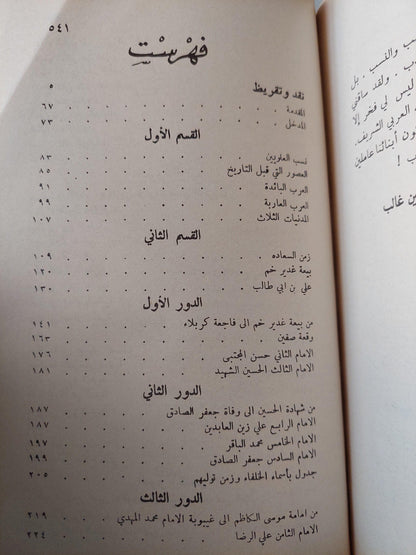 ٥٤١
فهرست
نقد وتقريظ . . . . . . . . . ٥
المقدمة . . . . . . . . . ٦٧
المدخل . . . . . . . . . ٧٣
القسم الأول
نسب العلويين . . . . . . . . . ٨٣
العصور التي قبل التاريخ . . . . . . . ٨٥
العرب البائدة . . . . . . . . . ٩١
العرب العاربة . . . . . . . . . ٩٩
المدنيات الثلاث . . . . . . . . . ١٠٧
القسم الثاني
زمن السعاده . . . . . . . . . ١٠٩
بيعة غدير خم . . . . . . . . . ١٢٠
علي بن ابي طالب . . . . . . . . ١٣٠
الدور الأول
من بيعة غدير خم الى فاجعة كربلاء . . . . . ١٤١
رفعة صفين . . . . . . . . . ١٦٣
الامام الثاني حسن المجتبى . . . . . . . ١٧٦
الامام الثالث الحسين الشهيد . . . . . . ١٨١
الدور الثاني
من شهادة الحسين الى وفاة جعفر الصادق . . . . ١٨٧
الامام الرابع علي زين العابدين . . . . . . ١٨٧
الامام الخامس محمد الباقر . . . . . . . ١٩٧
الامام السادس جعفر الصادق . . . . . . ١٩٩
جدول بأسماء الخلفاء وزمن توليهم . . . . . ٢٠٥
الدور الثالث
من امامة موسى الكاظم الى غيبوبة الامام محمد المهدي . ٢١٩
الامام الثامن علي الرضا . . . . . . . ٢٢٤
سب والنسب . بل
ب . ولقد ساقني
ليس لي فخر إلا
العربي الشريف .
ون أبنائنا عاملين
ب !
ين غالب